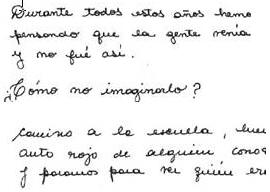 Durante todos estos años hemo
pensando que la gente venía
y no fué así.
¿Cómo no imaginarlo?
camino a la escuela,
auto rojo de alguien conos
y paramos para ver quién er